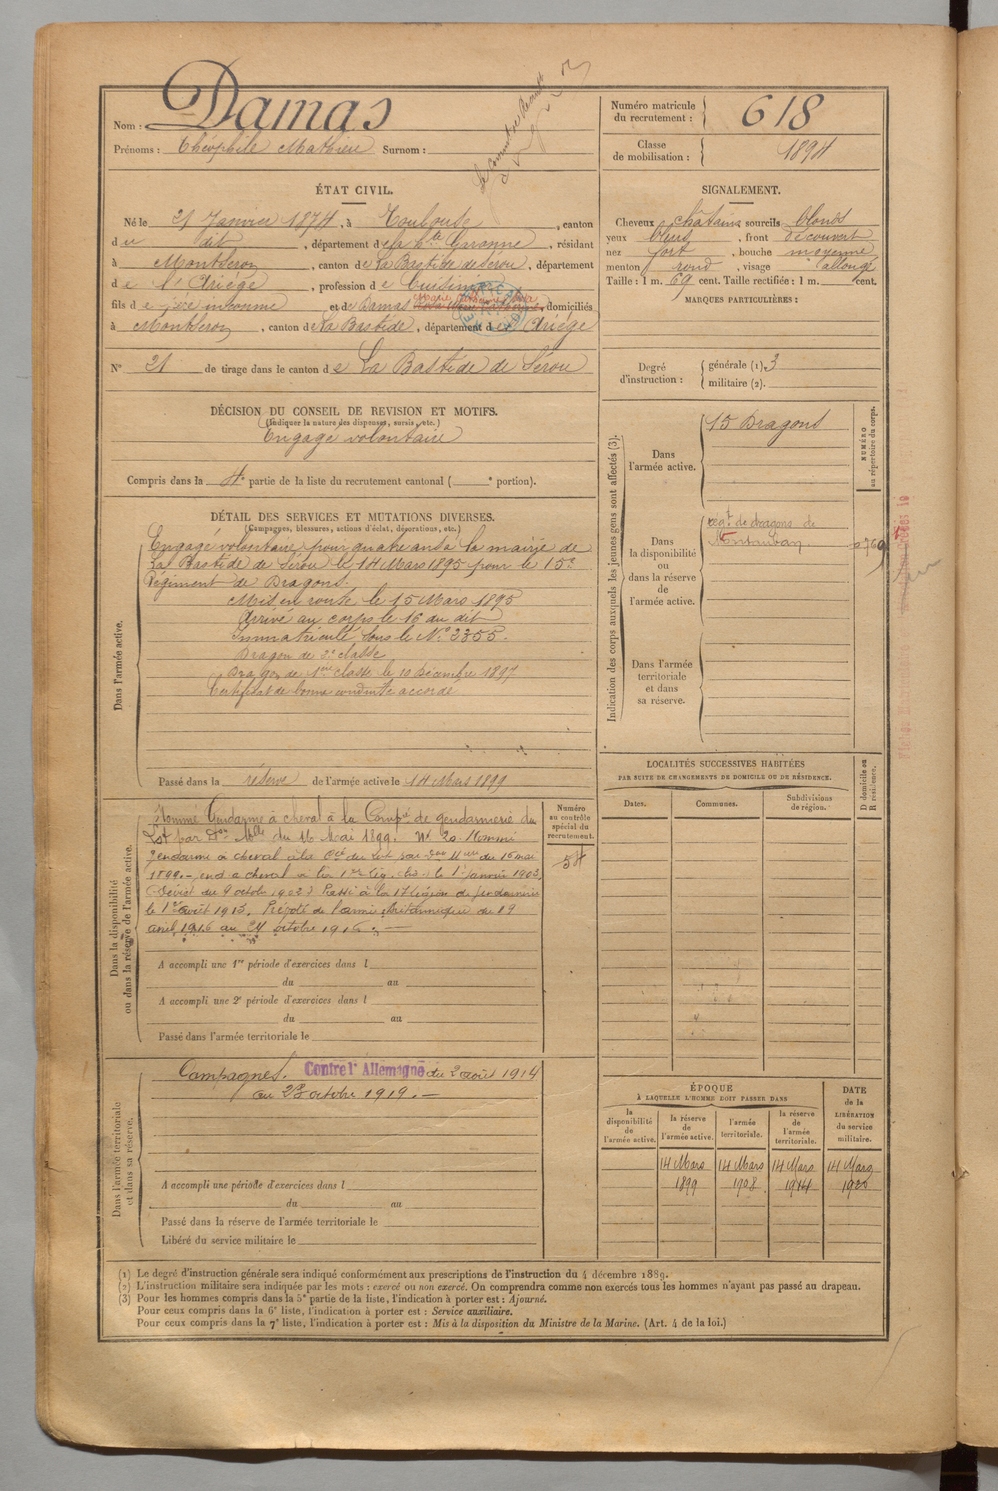 Nom : Damas
Prénoms : Théophile Mathieu Surnom :
Numéro matricule du recrutement : 618
Classe de mobilisation : 1894
ÉTAT CIVIL.
Né le 21 Janvier 1874, à Toulouse, canton
du dit, département de la Hte Garonne, résidant
à Montseron, canton de La Bastide de Sérou, département
de l'Ariège, profession de Cuisinier
fils de père inconnu et de Damas domiciliés
à Montseron, canton de La Bastide, département de Ariège
N° 21 de tirage dans le canton de La Bastide de Sérou
SIGNALEMENT.
Cheveux châtains sourcils blonds
yeux bleus, front découvert
nez fort, bouche moyenne
menton rond, visage allongé
Taille : 1 m. 69 cent. Taille rectifiée : 1 m. cent.
MARQUES PARTICULIÈRES :
Degré d'instruction : générale (1). 3
militaire (2).
DÉCISION DU CONSEIL DE REVISION ET MOTIFS.
(Indiquer la nature des dispenses, sursis, etc.)
Engagé volontaire
Compris dans la 4e partie de la liste du recrutement cantonal ( e portion).
DÉTAIL DES SERVICES ET MUTATIONS DIVERSES.
(Campagnes, blessures, actions d'éclat, décorations, etc.)
Dans l'armée active.
Engagé volontaire pour quatre ans à la mairie de
La Bastide de Sérou le 14 Mars 1895 pour le 15e
Régiment de Dragons.
Mis en route le 15 Mars 1895
Arrivé au corps le 16 du dit
Immatriculé sous le N° 3355.
Dragon de 2e classe
Dragon de 1ère classe le 10 Décembre 1897
Certificat de bonne conduite accordé
Passé dans la réserve de l'armée active le 14 Mars 1899
Indication des corps auxquels les jeunes gens sont affectés (3).
Dans l'armée active.
15 Dragons
NUMÉRO au répertoire du corps.
Dans la disponibilité ou dans la réserve de l'armée active.
Régt de dragons de
Montauban
Dans l'armée territoriale et dans sa réserve.
LOCALITÉS SUCCESSIVES HABITÉES
PAR SUITE DE CHANGEMENTS DE DOMICILE OU DE RÉSIDENCE.
Dates.
Communes.
Subdivisions de région.
D domicile ou R résidence.
Dans la disponibilité ou dans la réserve de l'armée active.
Nommé Gendarme à cheval à la Compie de gendarmerie du
Lot par Don Mlle du 16 Mai 1899. N° 20. Nommé
gendarme à cheval à la Cie du Lot par Don Mlle du 16 mai
1899. le 1er janvier 1903.
Passé à la 17 légion de gendarmerie
le 1er août 1913. Prévôté de l'armée britannique du 19
avril 1916 au 24 octobre 1916. —
Numéro au contrôle spécial du recrutement.
54
A accompli une 1re période d'exercices dans l
du au
A accompli une 2e période d'exercices dans l
du au
Passé dans l'armée territoriale le
Dans l'armée territoriale et dans sa réserve.
Campagnes. Contre l'Allemagne du 2 août 1914
au octobre 1919. —
A accompli une période d'exercices dans l
du au
Passé dans la réserve de l'armée territoriale le
Libéré du service militaire le
ÉPOQUE
À LAQUELLE L'HOMME DOIT PASSER DANS
la disponibilité de l'armée active.
la réserve de l'armée active.
l'armée territoriale.
la réserve de l'armée territoriale.
DATE de la LIBÉRATION du service militaire.
14 Mars 1899
14 Mars 1908
14 Mars 1914
14 Mars 1920
(1) Le degré d'instruction générale sera indiqué conformément aux prescriptions de l'instruction du 4 décembre 1889.
(2) L'instruction militaire sera indiquée par les mots : exercé ou non exercé. On comprendra comme non exercés tous les hommes n'ayant pas passé au drapeau.
(3) Pour les hommes compris dans la 5e partie de la liste, l'indication à porter est : Ajourné.
Pour ceux compris dans la 6e liste, l'indication à porter est : Service auxiliaire.
Pour ceux compris dans la 7e liste, l'indication à porter est : Mis à la disposition du Ministre de la Marine. (Art. 4 de la loi.)